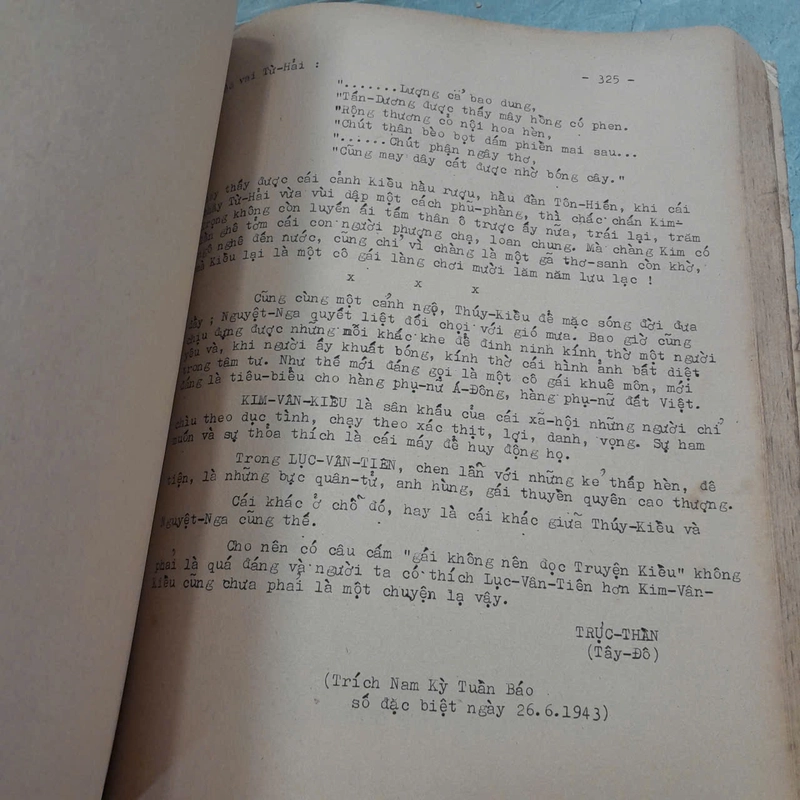 - 325 -
vai Từ-Hải :
".......Lượng cả bao dung,
"Tấn-Dương được thấy mây hồng có phen.
"Rộng thương cỏ nội hoa hèn,
"Chút thân bèo bọt dám phiền mai sau...
"......Chút phận ngây thơ,
"Cũng may dây cát được nhờ bóng cây."
thấy được cái cảnh Kiều hầu rượu, hầu đàn Tôn-Hiến, khi cái
Từ-Hải vừa vùi dập một cách phủ-phàng, thì chắc chắn Kim-
trọng không còn luyến ái tấm thân ô trược ấy nữa, trái lại, trăm
ghê tởm cái con người phượng chạ, loan chung. Mà chàng Kim có
nghê đến nước, cũng chỉ vì chàng là một gã thơ-sanh còn khờ,
Kiều lại là một cô gái làng chơi mười lăm năm lưu lạc !
x x x
Cũng cùng một cảnh ngộ, Thúy-Kiều để mặc sóng dời đưa
đẩy ; Nguyệt-Nga quyết liệt đối chọi với gió mưa. Bao giờ cũng
chịu đựng được những nỗi khắc khe để đinh ninh kính thờ một người
yêu và, khi người ấy khuất bóng, kính thờ cái hình ảnh bất diệt
trong tâm tư. Như thế mới đáng gọi là một cô gái khuê môn, mới
đáng là tiêu-biểu cho hàng phụ-nữ Á-Đông, hàng phụ-nữ đất Việt.
KIM-VÂN-KIỀU là sân khấu của cái xã-hội những người chỉ
chìu theo dục tình, chạy theo xác thịt, lợi, danh, vọng. Sự ham
muốn và sự thỏa thích là cái máy để huy động họ.
Trong LỤC-VÂN-TIÊN, chen lẫn với những kẻ thấp hèn, đê
tiện, là những bực quân-tử, anh hùng, gái thuyền quyên cao thượng.
Cái khác ở chỗ đó, hay là cái khác giữa Thúy-Kiều và
Nguyệt-Nga cũng thế.
Cho nên có câu cấm "gái không nên đọc Truyện Kiều" không
phải là quá đáng và người ta có thích Lục-Vân-Tiên hơn Kim-Vân-
Kiều cũng chưa phải là một chuyện lạ vậy.
TRỰC-THẦN
(Tây-Đô)
(Trích Nam Kỳ Tuần Báo
số đặc biệt ngày 26.6.1943)